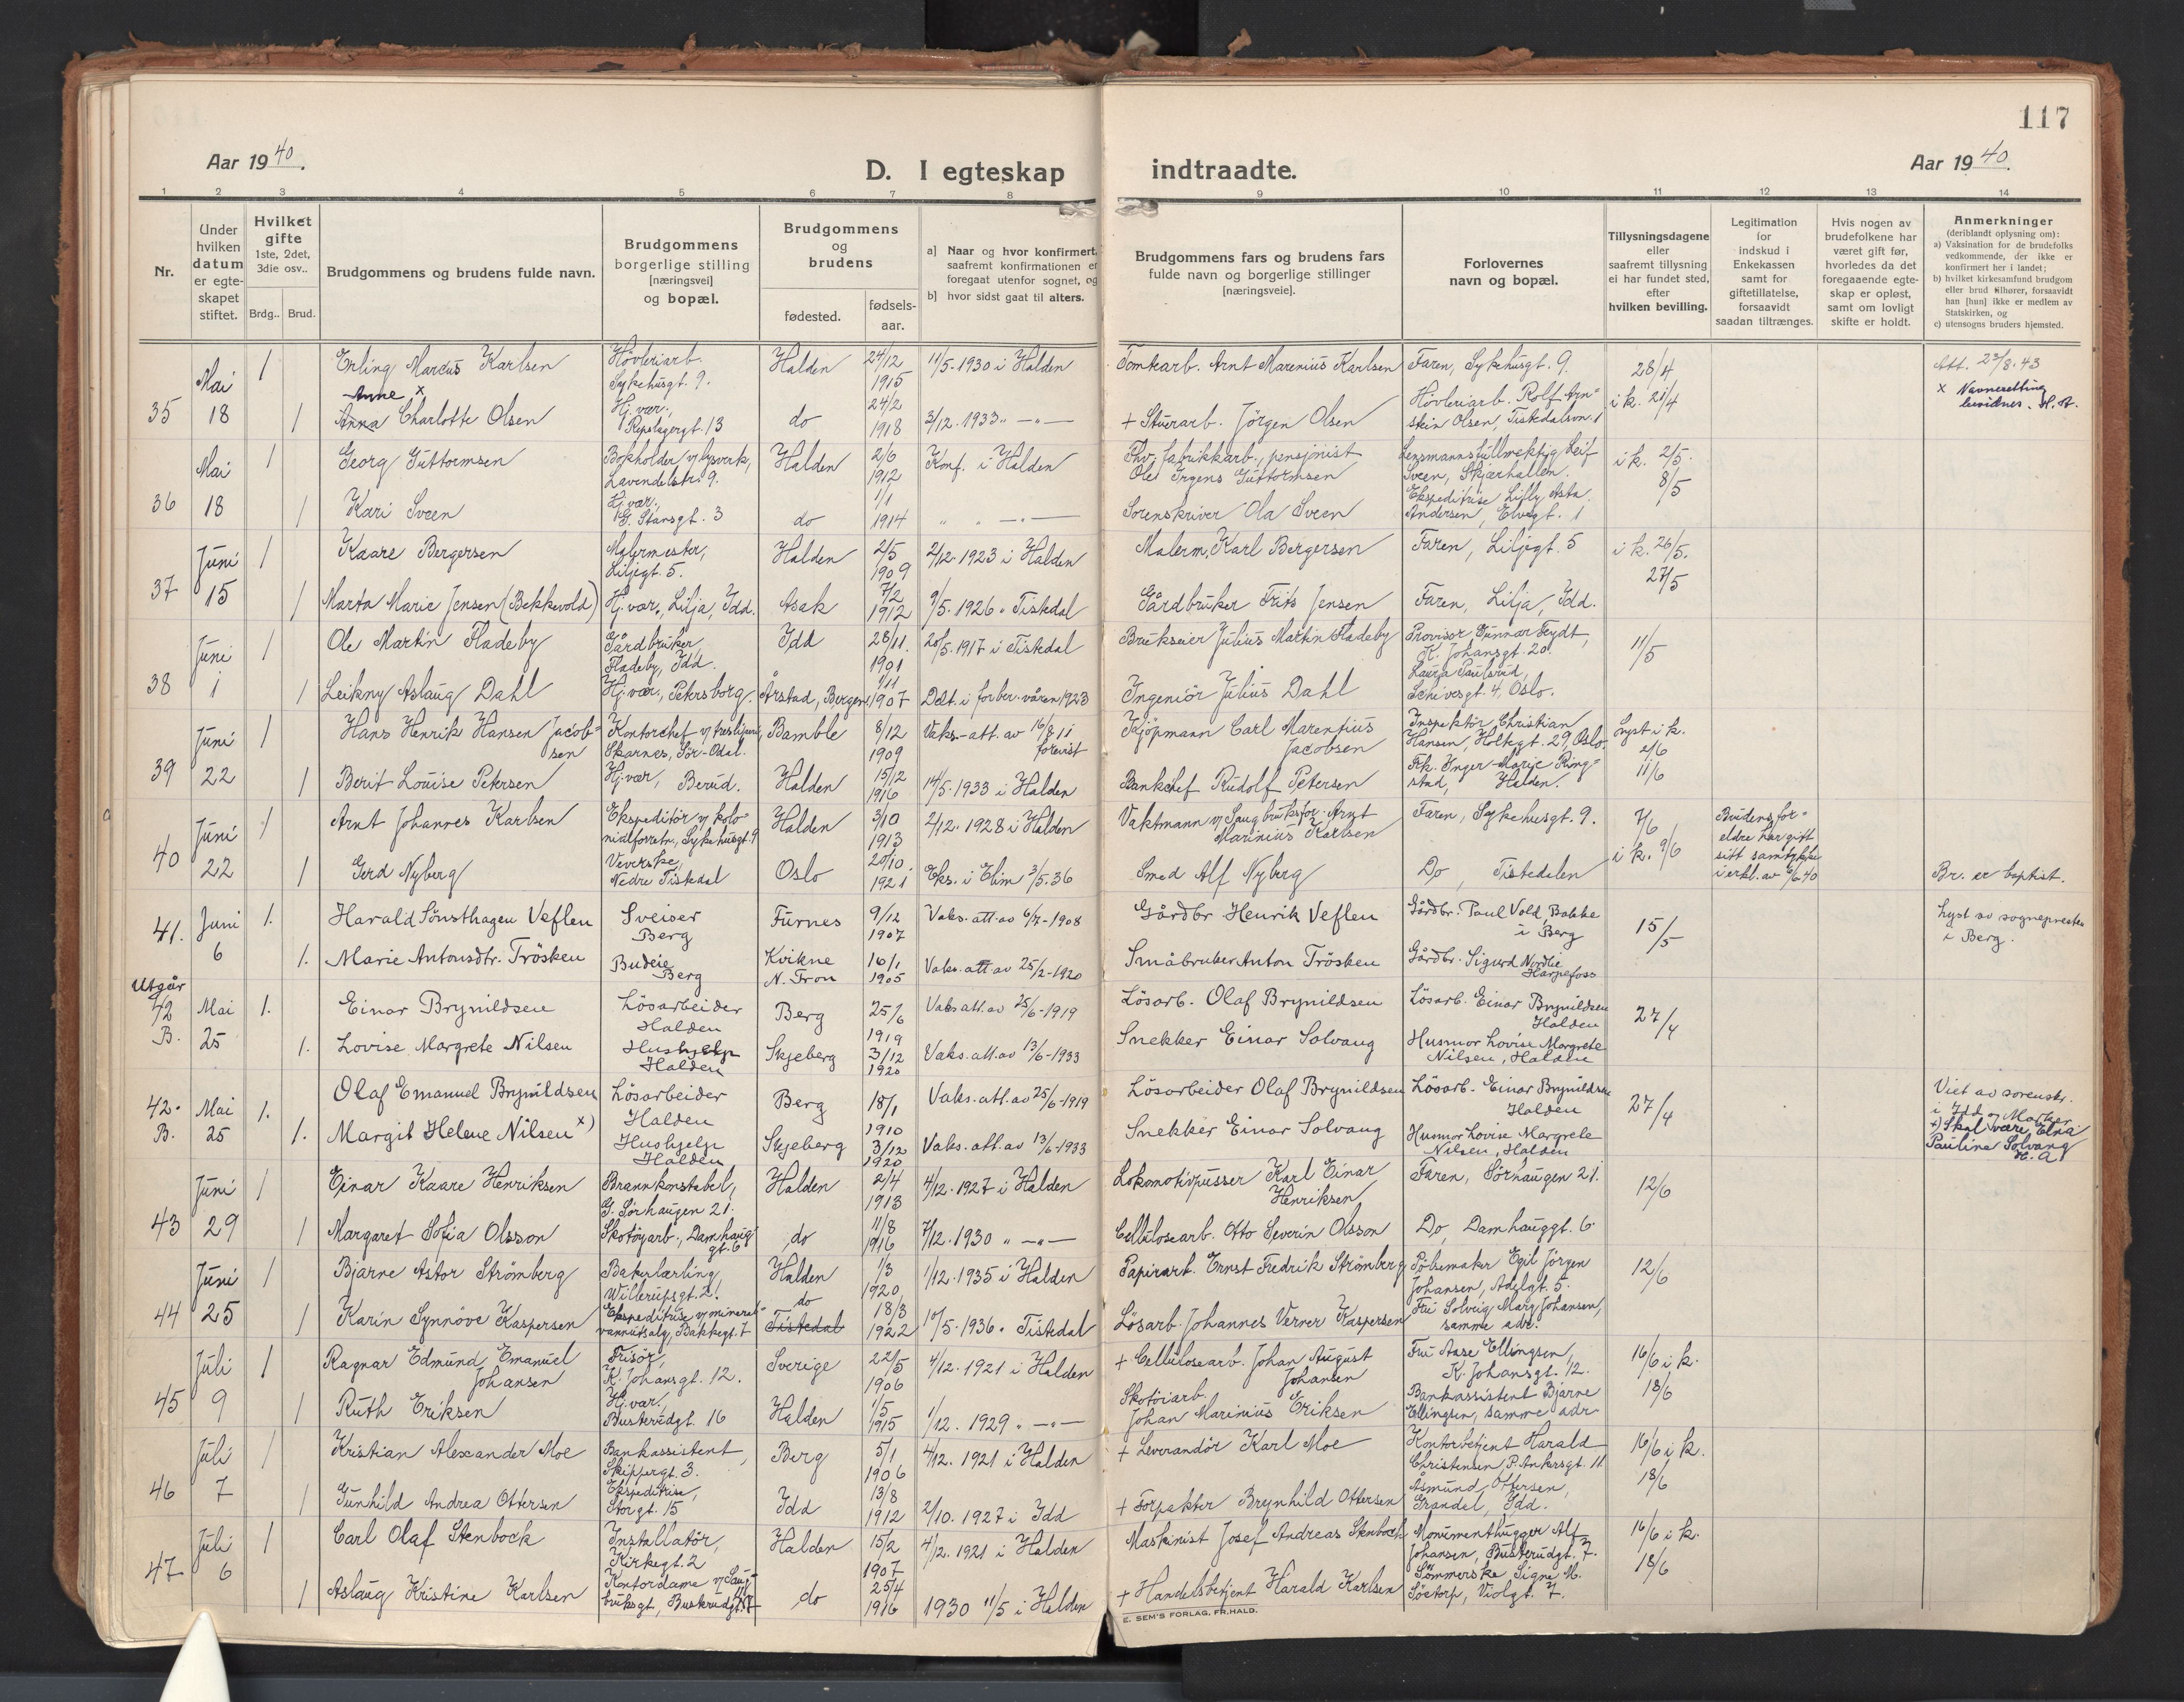 117
Aar 1940.
D. I egteskap indtraadte.
Aar 1940
1 2 3 4 5 6 7 8 9 10 11 12 13 14
Nr.
Under hvilken datum er egteskapet stiftet.
Hvilket gifte 1ste, 2det, 3die osv..
Brdg.. Brud.
Brudgommens og brudens fulde navn.
Brudgommens borgerlige stilling [næringsvei] og bopæl.
Brudgommens og brudens
fødested.
fødselsaar.
a] Naar og hvor konfirmert, saafremt konfirmationen er foregaat utenfor sognet, og
b] hvor sidst gaat til alters.
Brudgommens fars og brudens fars fulde navn og borgerlige stillinger [næringsveie].
Forlovernes navn og bopæl.
Tillysningsdagene eller saafremt tillysning ei har fundet sted, efter hvilken bevilling.
Legitimation for indskud i Enkekassen samt for giftetillatelse, forsaavidt saadan tiltrænges.
Hvis nogen av brudefolkene har været gift før, hvorledes da det foregaaende egteskap er opløst, samt om lovligt skifte er holdt.
Anmerkninger (deriblandt oplysning om):
a) Vaksination for de brudefolks vedkommende, der ikke er konfirmert her i landet;
b) hvilket kirkesamfund brudgom eller brud tilhører, forsaavidt han [hun] ikke er medlem av Statskirken, og
c) utensogns bruders hjemsted.
35 Mai 18 1 Erling Marcus Karlsen Høvleriarb. Sykehusgt. 9. Halden 24/12 1915 11/5-1930 i Halden Tomtearb. Arnt Marenius Karlsen Faren, Sykehusgt. 9. 28/4 Att. 23/8.43
1 Anne x Anna Charlotte Olsen Hj.vær., Repslagergt. 13 do 24/2 1918 3/12.1933 „ —„— + Stuerarb. Jörgen Olsen Hövleriarb. Rolf Arnstein Olsen, Tistedalsvn. 1 i k. 21/4 x Navneretting H.A.
36 Mai 18 1 Georg Guttormsen Bokholder v/ lysverk, Lavendelstr. 9. Halden 2/6 1912 Konf. i Halden Fhv. fabrikkarb., pensjonist Ole Irgens Guttormsen Lensmannsfullmektig Leif Sveen, Skjærhallen. i k. 2/5.
1 Kari Sveen Hj.vær., G. Stansgt. 3 do 1/1 1914 „ „ —„— Sorenskriver Ola Sveen Ekspeditrise Lilly Asta Andersen, Elvegt. 1 8/5
37 Juni 15 1 Kaare Bergersen Malermester, Liljegt. 5. Halden 2/5 1909 2/12 1923 i Halden Malerm. Karl Bergersen Faren, Liljegt. 5 i k. 26/5.
1 Marta Marie Jensen (Bekkevold) Hj.vær., Lilja, Idd. Asak 7/2 1912 9/5.1926 „ Tistedal Gårdbruker Frits Jensen Faren, Lilja, Idd. 27/5
38 Juni 1 1 Ole Martin Fladeby Gårdbruker, Fladeby, Idd. Idd 28/11. 1901 20/5.1917 i Tistedal Brukseier Julius Martin Fladeby Provisor Gunnar Feydt, K. Johansgt. 20. 11/5
1 Leikny Aslaug Dahl Hj.vær., Petersborg. Årstad, Bergen 1/11 1907 Delt. i forber. våren 1923 Ingeniör Julius Dahl Laura Paulsrud, Schivesgt. 4, Oslo.
39 Juni 22 1 Hans Henrik Hansen Jacobsen Kontorchef v/ tresliperi, Skarnes, Sör-Odal. Bamble 8/12 1909 Vaks.-att. av 16/8 11 forevist Kjöpmann Carl Marentius Jacobsen Inspektör Christian Hansen, Holtegt. 29, Oslo. Lyst i k. 2/6
1 Berit Louise Petersen Hj.vær, Berud. Halden 15/12 1916 14/5.1933 i Halden Bankchef Rudolf Petersen Frk. Inger-Marie Ringstad, Halden. 11/6
40 Juni 22 1 Arnt Johannes Karlsen Ekspeditör v/ kolonialforretn., Sykehusgt. 9 Halden 3/10 1913 2/12.1928 i Halden Vaktmann v/ Saugbruksfor. Arnt Marinius Karlsen Faren, Sykehusgt. 9. 7/6 Brudens foreldre har gitt sitt samtykke i erkl. av 6/6 40
1 Gerd Nyberg Veverske, Nedre Tistedal Oslo 20/10 1921 Eks. i Elim 3/5.36 Smed Alf Nyberg Do, Tistedalen i k. 9/6 Br. er baptist.
41. Juni 6 1. Harald Sönsthagen Veflen Sveiser Berg Furnes 9/12 1907 Vaks. att. av 6/7-1908 Gårdbr Henrik Veflen Gårdbr. Paul Vold, Bakke i Berg 15/5 Lyst av sognepresten i Berg.
1. Marie Antonsdtr. Trösken Budeie Berg Kvikne N. Fron 16/1 1905 Vaks. att av 25/2-1920 Småbruker Anton Trösken Gårdbr. Sigurd Nordlie Harpefoss
Utgår
42 B. Mai 25 1. Einar Brynildsen Lösarbeider Halden Berg 25/6 1919 Vaks. att. av 25/6-1919 Lösarb. Olaf Brynildsen Lösarb. Einar Brynildsen Halden 27/4
1. Lovise Margrete Nilsen Hushjelp Halden Skjeberg 3/12 1920 Vaks. att. av 13/6-1933 Snekker Einar Solvang Husmor Lovise Margrete Nilsen, Halden
42. B. Mai 25 1. Olaf Emanuel Brynildsen Lösarbeider Halden Berg 18/1 1910 Vaks. att. av 25/6-1919 Lösarbeider Olaf Brynildsen Lösarb. Einar Brynildsen Halden 27/4 Viet av sorenskr. i Idd og Marker
1. Margit Helene Nilsen x) Hushjelp Halden Skjeberg 3/12 1920 Vaks. att. av 13/6-1933 Snekker Einar Solvang Husmor Lovise Margrete Nilsen, Halden +) Skal være Elna Pauline Solvang H.A
43 Juni 29 1 Einar Kaare Henriksen Brannkonstabel, G. Sörhaugen 21. Halden 2/4 1913 4/12.1927 i Halden Lokomotivpusser Karl Einar Henriksen Faren, Sörhaugen 21. 12/6
1 Margaret Sofia Olsson Skotöyarb., Damhauggt. 6 do 11/8 1916 7/12.1930 „ —„— Cellulosearb. Otto Severin Olsson Do, Damhauggt. 6.
44 Juni 25 1 Bjarne Astor Strömberg Bakerlærling Willerupsgt. 2. Halden 1/3 1920 1/12.1935 i Halden Papirarb. Ernst Fredrik Strömberg Pölsemaker Egil Jörgen Johansen, Adelgt. 5. 12/6
1 Karin Synnöve Kaspersen Ekspeditrise v/ mineralvannutsalg, Bakkegt. 7 do Tistedal 18/3 1922 10/5.1936 „ Tistedal Lösarb. Johannes Verner Kaspersen Fru Solveig Marg. Johansen, samme adr.
45 Juli 9 1 Ragnar Edmund Emanuel Johansen Frisör, K. Johansgt. 12. Sverige 22/5 1906 4/12.1921 i Halden + Cellulosearb. Johan August Johansen Fru Aase Ellingsen, K. Johansgt. 12. 16/6 i k.
1 Ruth Eriksen Hj.vær, Busterudgt. 16 Halden 1/5 1915 1/12.1929 „ —„— Skotöiarb. Johan Marinius Eriksen Bankassistent Bjarne Ellingsen, samme adr. 18/6
46 Juli 7 1 Kristian Alexander Moe Bankassistent, Skippergt. 3. Berg 5/1 1906 4/12.1921 i Halden + Leverandör Karl Moe Kontorbetjent Harald Christensen, P. Ankersgt. 11 16/6 i k.
1 Gunhild Andrea Ottersen Ekspeditrise, Storgt. 15 Idd 13/8 1912 2/10.1927 i Idd + Forpakter Brynhild Ottersen Åsmund Ottersen, Grandel, Idd. 18/6
47 Juli 6 1 Carl Olaf Stenbock Installatör, Kirkegt. 2 Halden 15/2 1907 4/12.1921 i Halden Maskinist Josef Andreas Stenbock Monumenthugger Alf Johansen, Busterudgt. 7. 16/6 i k.
1 Aslaug Kristine Karlsen Kontordame v/ Saugbruksgt, Busterudgt. do 25/4 1916 1930 11/5 i Halden + Handelsbetjent Harald Karlsen Sömmerske Signe M. Söetorp, Violgt. 7. 18/6
E. SEM'S FORLAG, FR.HALD.